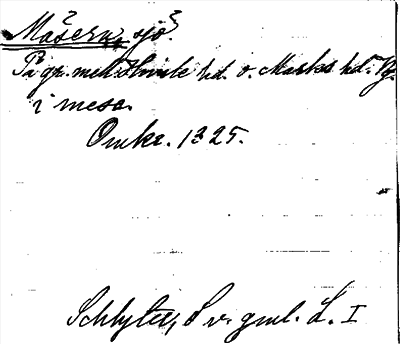 Måsern, sjö.
På gr. mell. Kinds hd. o. Marks hd. Vg.
i mesa.
Omkr. 1325.
Schlyter, Sv. gml. L. I